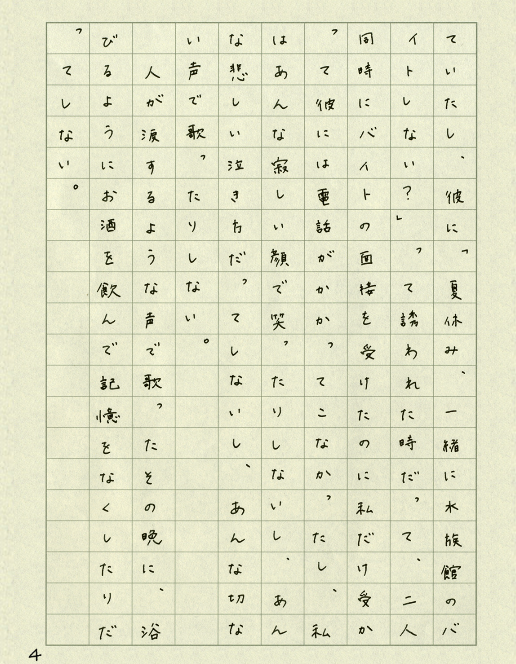 ていたし、彼に「夏休み、一緒に水族館のバ
イトしない?」って誘われた時だって、二人
同時にバイトの面接を受けたのに私だけ受か
って彼には電話がかかってこなかったし、私
はあんな寂しい顔で笑ったりしないし、あん
な悲しい泣き方だってしないし、あんな切な
い声で歌ったりしない。
人が涙するような声で歌ったその晩に、浴
びるようにお酒を飲んで記憶をなくしたり、だ
ってしない。
4